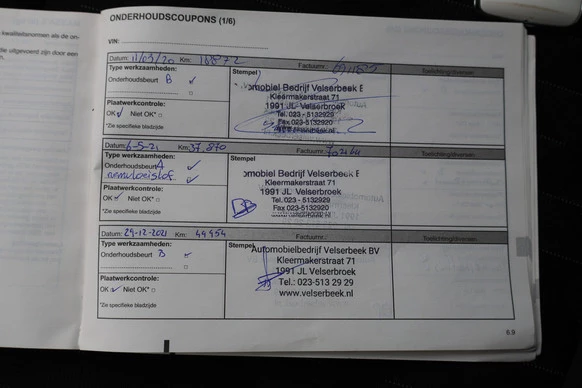 ONDERHOUDSCOUPONS (1/6)
VIN:
Datum: 11/03/20 Km: 18872 Factuurnr.: Toelichting/diversen:
Type werkzaamheden:
Onderhoudsbeurt B ✓
Plaatwerkcontrole:
OK ✓ Niet OK* □
*Zie specifieke bladzijde
Stempel
omobiel Bedrijf Velserbeek B
Kleermakerstraat 71
1991 JL Velserbroek
Tel. 023 - 5132929
Fax 023-5132920
Datum: 6-5-21 Km: 37,870 Factuurnr.: Toelichting/diversen:
Type werkzaamheden:
Onderhoudsbeurt A ✓
Plaatwerkcontrole:
OK ✓ Niet OK* □
*Zie specifieke bladzijde
Stempel
omobiel Bedrijf Velserbeek B
Kleermakerstraat 71
1991 JL Velserbroek
Tel. 023 - 5132929
Fax 023-5132920
Datum: 29-12-2021 Km: 49454 Factuurnr.: Toelichting/diversen:
Type werkzaamheden:
Onderhoudsbeurt B ✓
Plaatwerkcontrole:
OK ✓ Niet OK* □
*Zie specifieke bladzijde
Stempel
Automobielbedrijf Velserbeek BV
Kleermakerstraat 71
1991 JL Velserbroek
Tel.: 023-513 29 29
www.velserbeek.nl
6.9